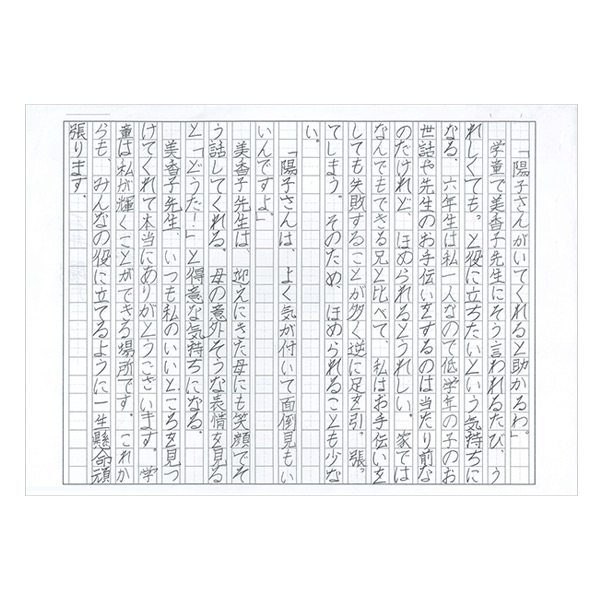 「陽子さんがいてくれると助かるわ。」
　学童で美香子先生にそう言われるたび、う
れしくても。と役に立ちたいという気持ちに
なる。六年生は私一人なので低学年の子のお
世話や先生のお手伝いをするのは当たり前な
のだけれど、ほめられるとうれしい。家では
なんでもできる兄と比べて、私はお手伝いを
しても失敗することが多く逆に足を引。張っ
てしまう。そのため、ほめられることも少な
い。
「陽子さんは、よく気が付いて面倒見もい
いんですよ」
　美香子先生は、迎えにきた母にも笑顔でそ
う話してくれる。母の意外そうな表情を見る
と「どうだ！」と得意な気持ちになる。
　美香子先生、いつも私のいいところを見つ
けてくれて本当にありがとうございます。学
童は私が輝くことができる場所です。これか
らも、みんなの役に立てるように一生懸命頑
張ります。